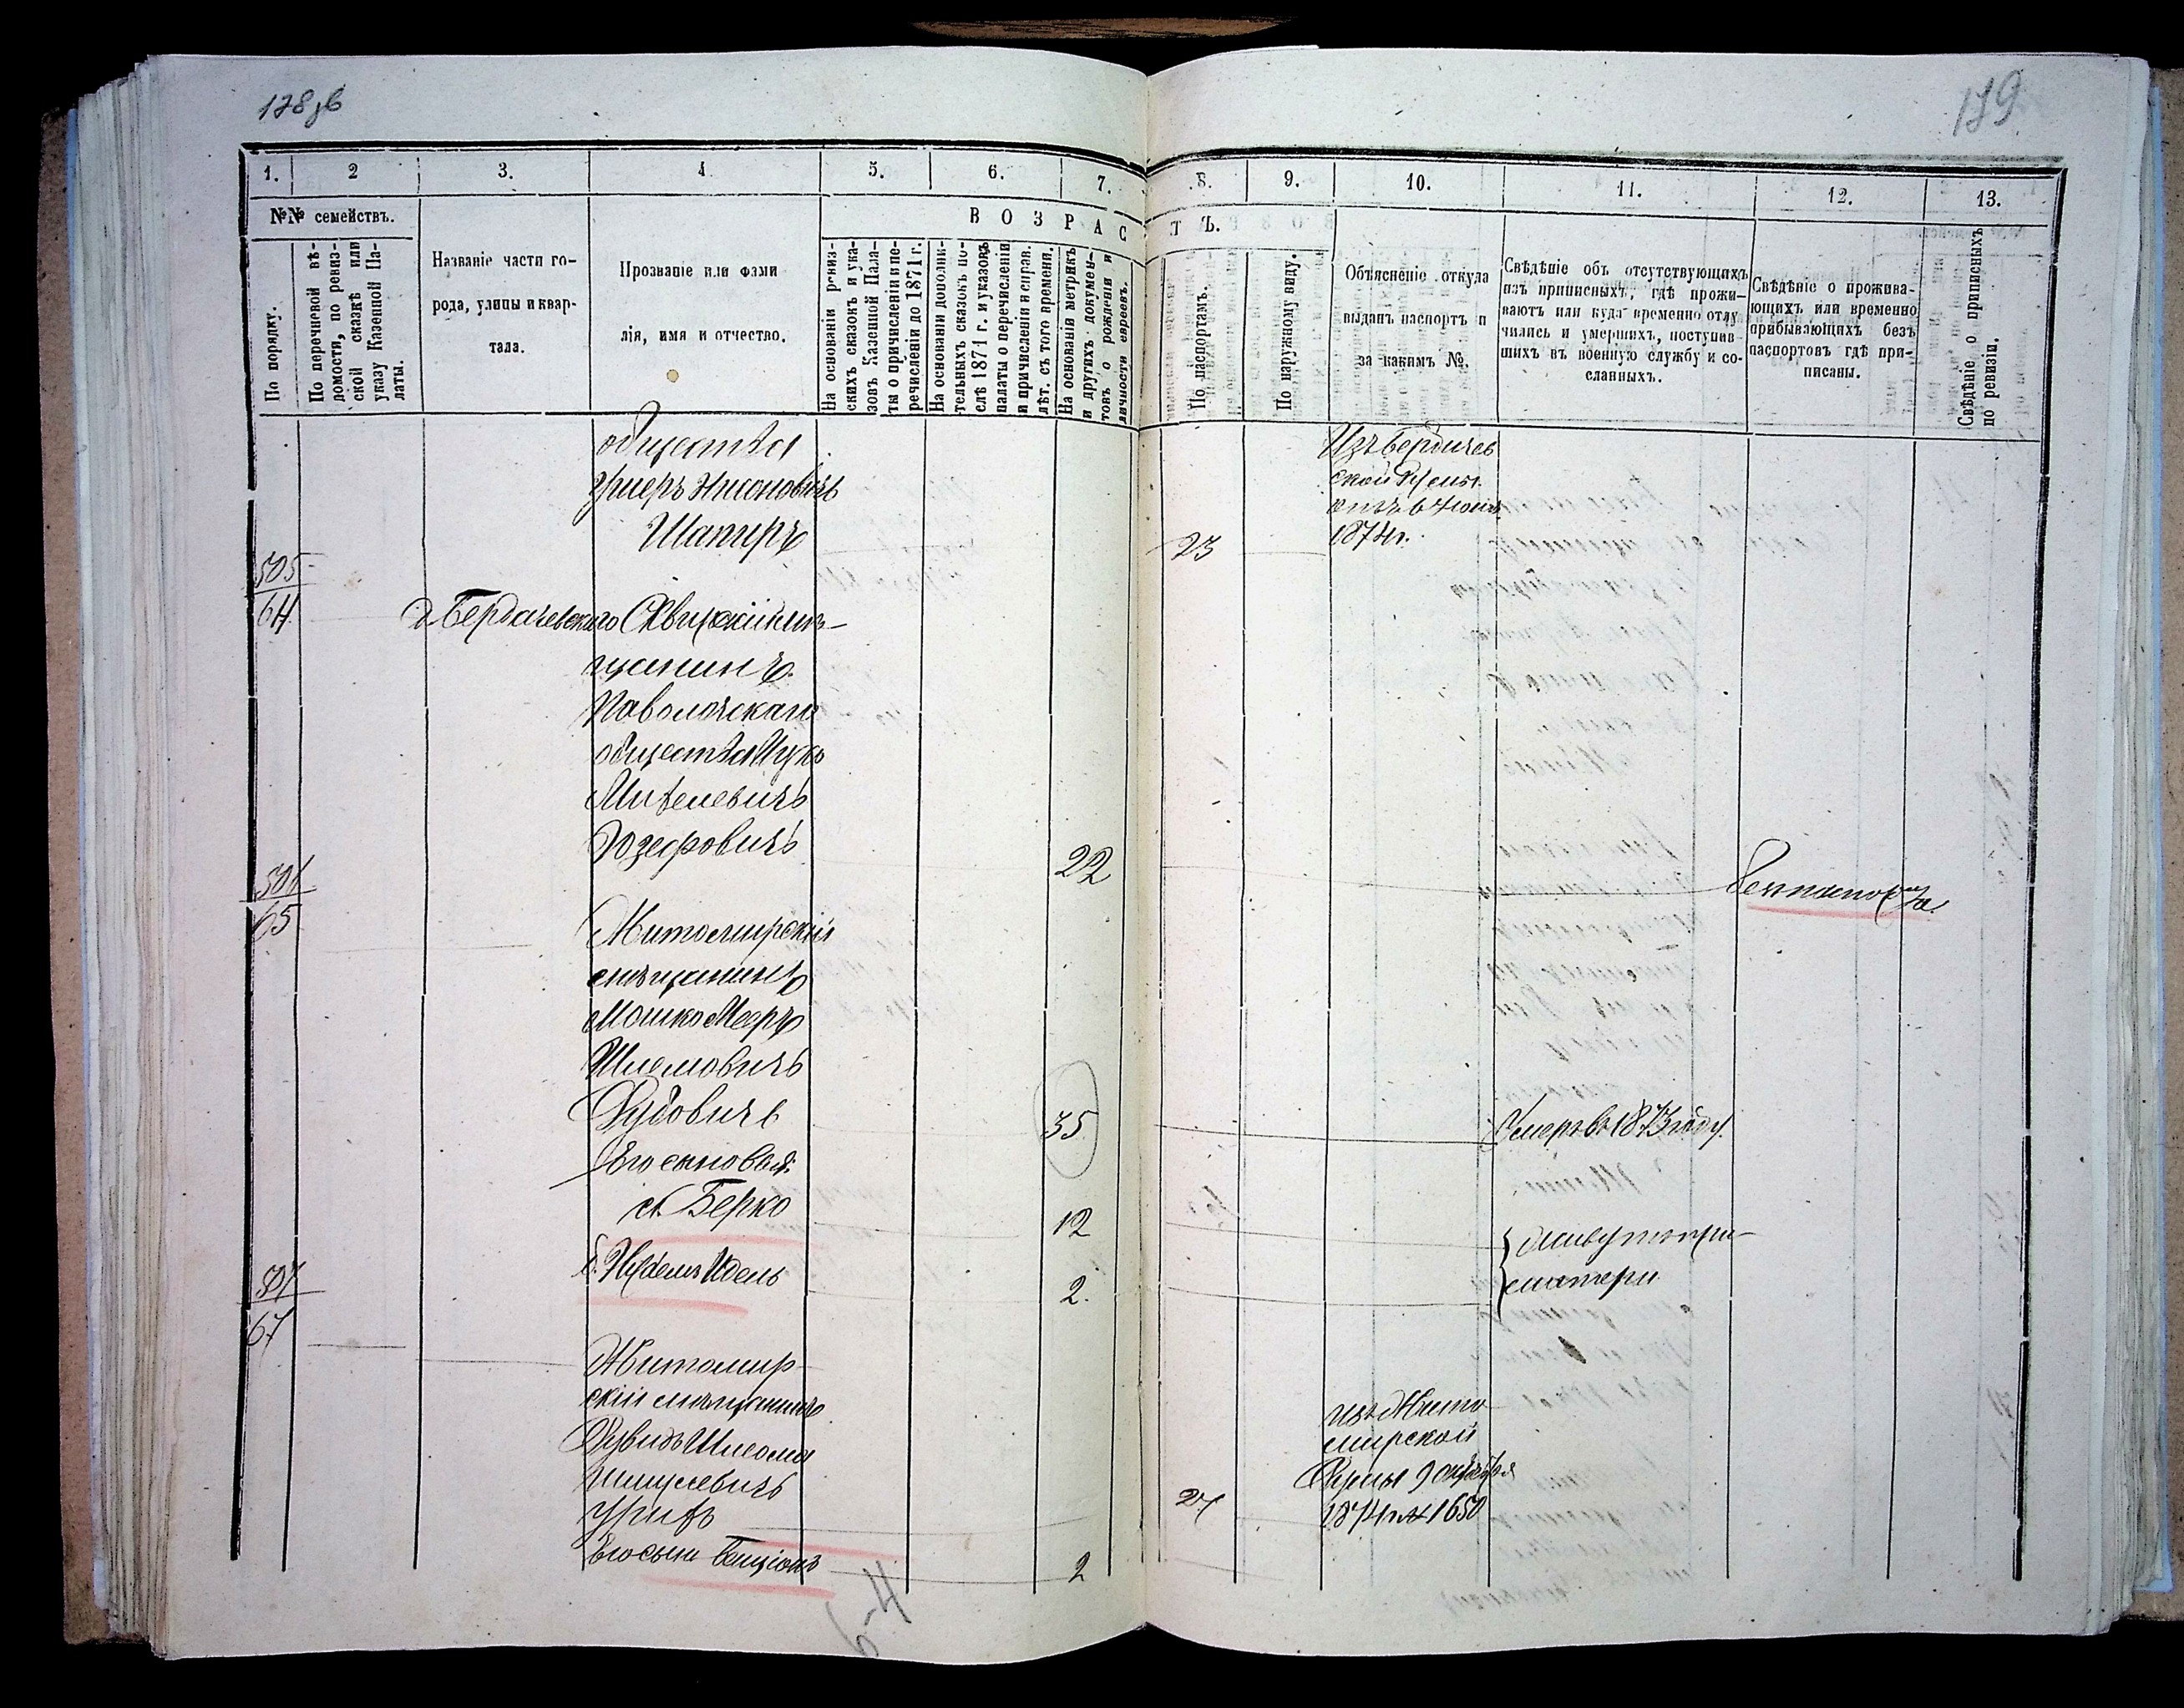 179
1. 2 3. 4 5. 6. 7. 8. 9. 10. 11. 12. 13.
№№ семействъ.
В О З Р А С Т Ъ.
По порядку.
По перечневой вѣ-
домости, по ревиз-
ской сказкѣ или
указу Казенной Па-
латы.
Названіе части го-
рода, улицы и квар-
тала.
Прозваніе или фами
лія, имя и отчество.
На основаніи ревиз-
скихъ сказокъ и ука-
зовъ Казенной Пала-
ты о причисленіи и пе-
речисленіи до 1871 г.
На основаніи дополни-
тельныхъ сказокъ по-
слѣ 1871 г. и указовъ
палаты о перечисленіи
и причисленіи и справ.
лѣт. съ того времени.
На основаніи метрикъ
и другихъ докумен-
товъ о рожденіи и
личности евреевъ.
По паспортамъ.
По наружному виду.
Объясненіе откуда
выданъ паспортъ и
за какимъ №.
Свѣдѣніе объ отсутствующихъ
изъ приписныхъ, гдѣ прожи-
ваютъ или куда временно отлу
чились и умершихъ, поступив-
шихъ въ военную службу и со-
сланныхъ.
Свѣдѣніе о прожива-
ющихъ или временно
прибывающихъ безъ
паспортовъ гдѣ при-
писаны.
Свѣдѣніе о приписныхъ
по ревизіи.
общества
Нисоновичъ
Шапиръ
23
Изъ Бердичев
ской
1874 г.
505
64
Бердичевскаго Сквирскій мѣ-
щанинъ
Паволочскаго
общества Ицко
Юзефовичъ
22
Безъ паспорта
65
Житомирскій
мѣщанинъ
Мошко Мееръ
Шлемовичъ
35
Умеръ въ 1873 году.
Его сыновья:
а. Берко
12
Живутъ при
матери
б. Идель
2.
507
67
Житомир-
скій мѣщанинъ
Шлиома
27
изъ Жито
мирской
Думы 9 октября
1874 г. № 1650
Его сынъ Бенціонъ
2